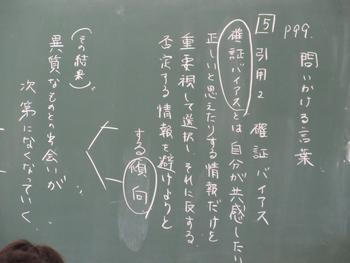 P99.
問いかける言葉
5 引用2 確証バイアス
確証バイアスとは自分が共感したり
正しいと思えたりする情報だけを
重要視して選択し、それに反する
否定する情報を避けようと
する傾向
(その結果)
異質なものと出会いが
次第になくなっていく